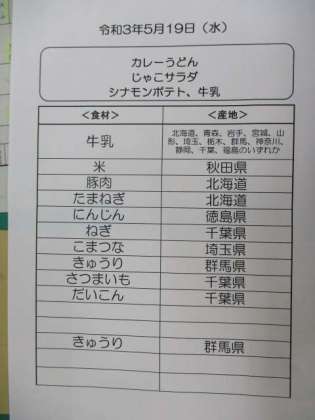 令和3年5月19日（水）
カレーうどん
じゃこサラダ
シナモンポテト、牛乳
＜食材＞ ＜産地＞
牛乳 北海道、青森、岩手、宮城、山
形、埼玉、栃木、群馬、神奈川、
静岡、千葉、福島のいずれか
米 秋田県
豚肉 北海道
たまねぎ 北海道
にんじん 徳島県
ねぎ 千葉県
こまつな 埼玉県
きゅうり 群馬県
さつまいも 千葉県
だいこん 千葉県
きゅうり 群馬県